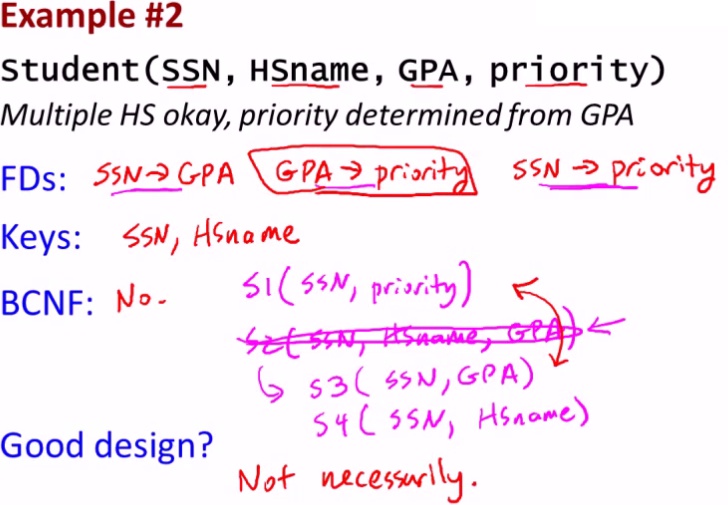 Example #2
Student(SSN, HSname, GPA, priority)
Multiple HS okay, priority determined from GPA
FDs: SSN → GPA GPA → priority SSN → priority
Keys: SSN, HSname
BCNF: No. S1(SSN, priority)
S2(SSN, HSname, GPA) ←
S3(SSN, GPA)
S4(SSN, HSname)
Good design?
Not necessarily.